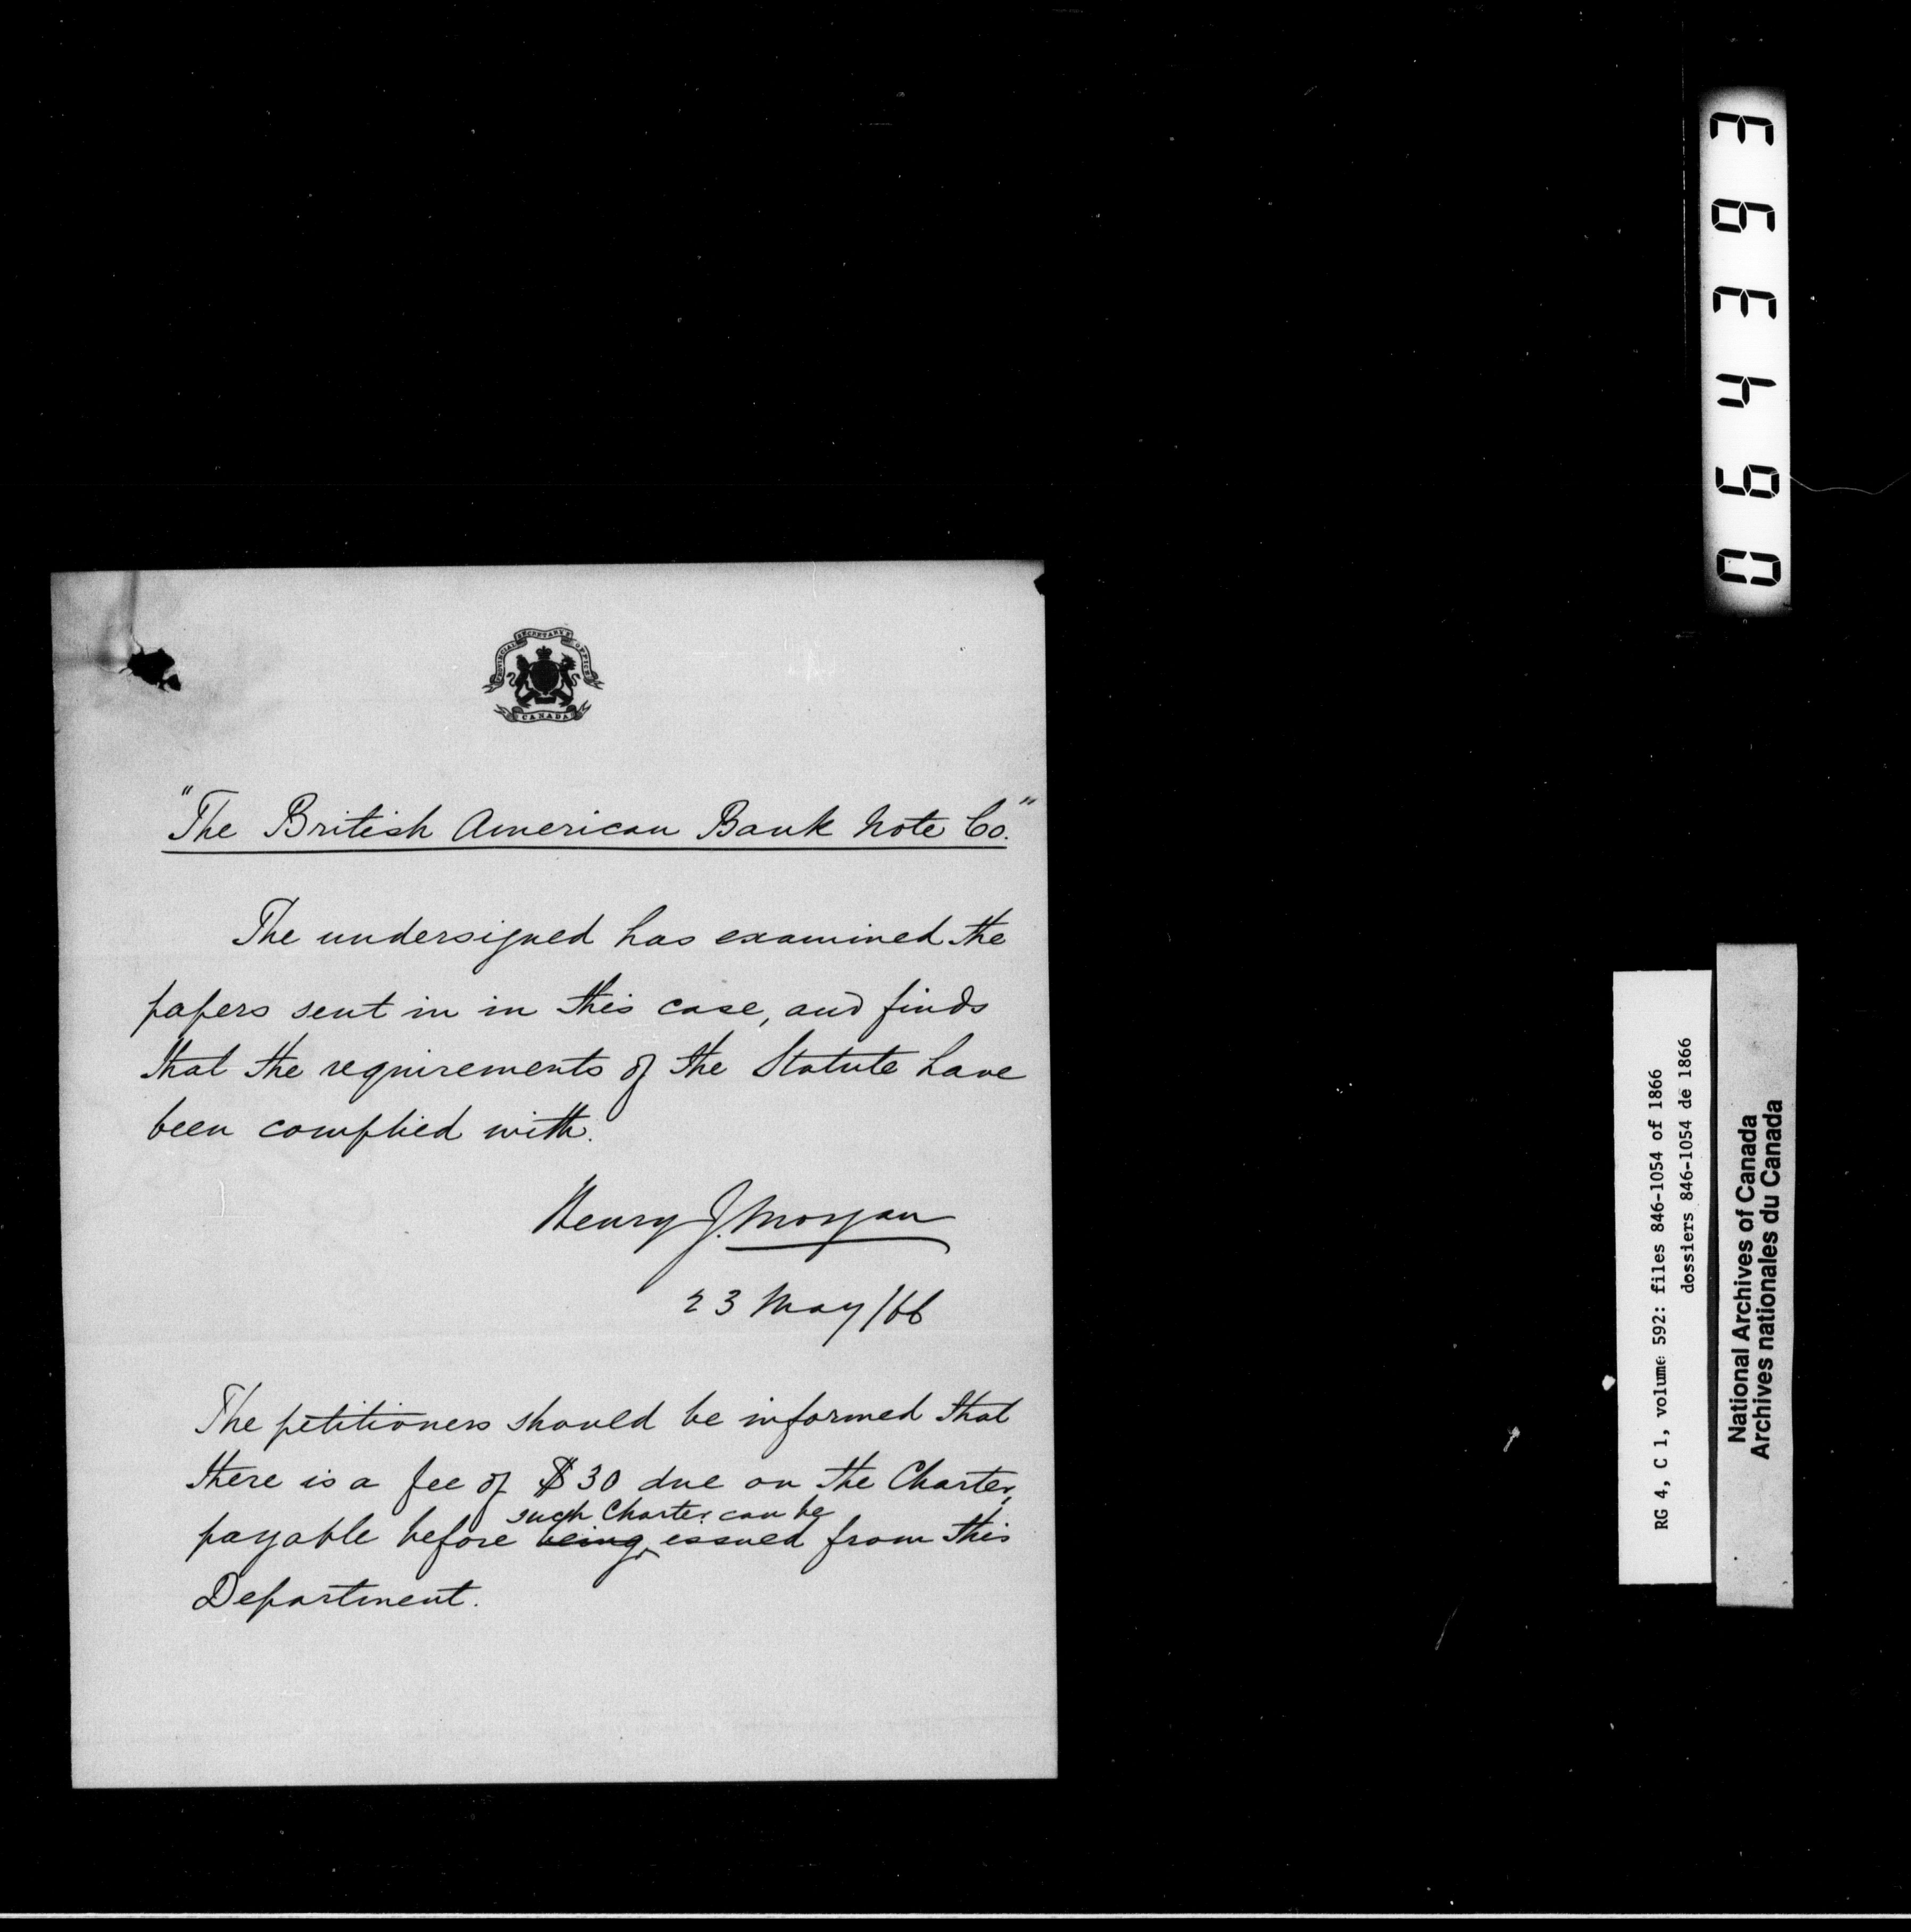 PROVINCIAL SECRETARY'S OFFICE
CANADA
"The British American Bank Note Co."
The undersigned has examined the
papers sent in in this case, and finds
that the requirements of the Statute have
been complied with.
Henry J. Morgan
23 May /66
The petitioners should be informed that
there is a fee of $30 due on the Charter,
such Charter can be
payable before being issued from this
Department.
064363
RG 4, C 1, volume 592: files 846-1054 of 1866
dossiers 846-1054 de 1866
National Archives of Canada
Archives nationales du Canada